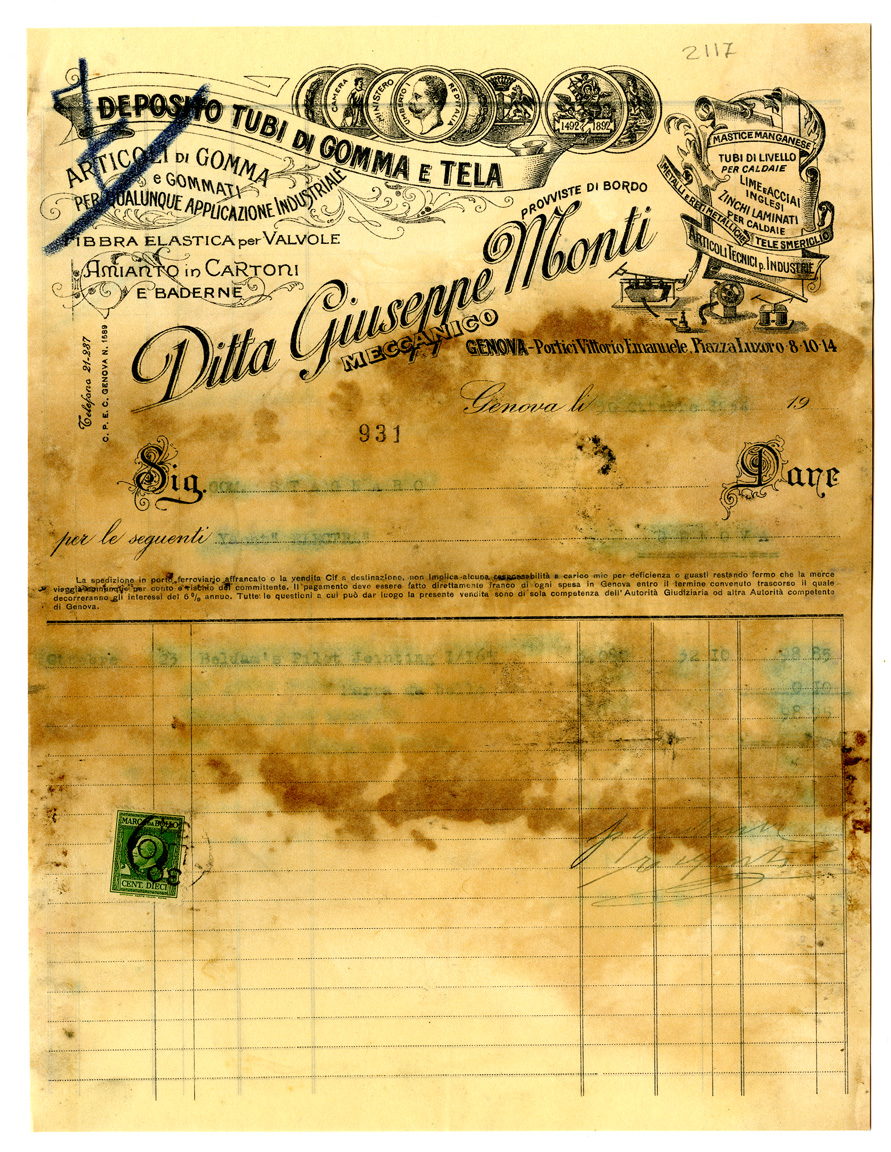 2117
DEPOSITO TUBI DI GOMMA E TELA
CAMERA
MINISTERO
UMBERTO I RE D'ITALIA
1492 1892
ARTICOLI DI GOMMA
E GOMMATI
PER QUALUNQUE APPLICAZIONE INDUSTRIALE
FIBBRA ELASTICA per VALVOLE
AMIANTO in CARTONI
E BADERNE
MASTICE MANGANESE
TUBI DI LIVELLO
PER CALDAIE
LIME E ACCIAI
INGLESI
ZINCHI LAMINATI
PER CALDAIE
METALLI E RETI METALLICHE
TELE SMERIGLIO
ARTICOLI TECNICI p. INDUSTRIE
PROVVISTE DI BORDO
Ditta Giuseppe Monti
MECCANICO
GENOVA - Portici Vittorio Emanuele, Piazza Luzoro 8-10-14
Telefono 21-287
C. P. E. C. GENOVA N. 1589
Genova li 19
931
Sig. Dare
per le seguenti
GENOVA
La spedizione in porto ferroviario affrancato o la vendita Cif a destinazione, non implica alcuna responsabilità a carico mio per deficienza o guasti restando fermo che la merce
viaggia comunque per conto e rischio del committente. Il pagamento deve essere fatto direttamente franco di ogni spesa in Genova entro il termine convenuto trascorso il quale
decorreranno gli interessi del 6% annuo. Tutte le questioni a cui può dar luogo la presente vendita sono di sola competenza dell'Autorità Giudiziaria od altra Autorità competente
di Genova.
Ottobre 23 Beldam's Pilot Jointing 1/16" 32.10 98.85
Marca da bollo 0.10
98.95
MARCA DA BOLLO
10
CENT. DIECI
30